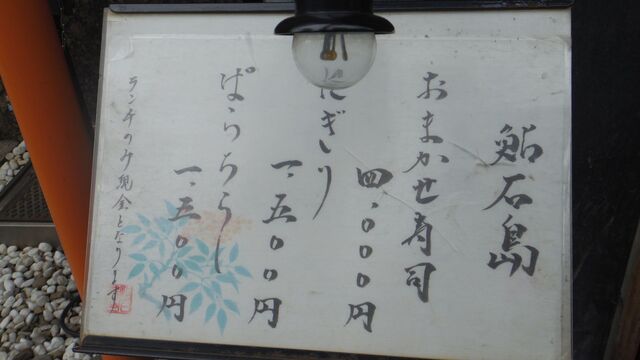 鮨石島
おまかせ寿司
四、〇〇〇円
にぎり
一、五〇〇円
ばらちらし
一、三〇〇円
ランチのみ現金となります